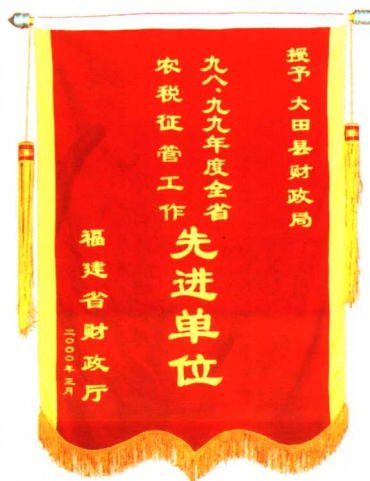 授予 大田县财政局
九八、九九年度全省
农税征管工作
先进单位
福建省财政厅
二〇〇〇年正月